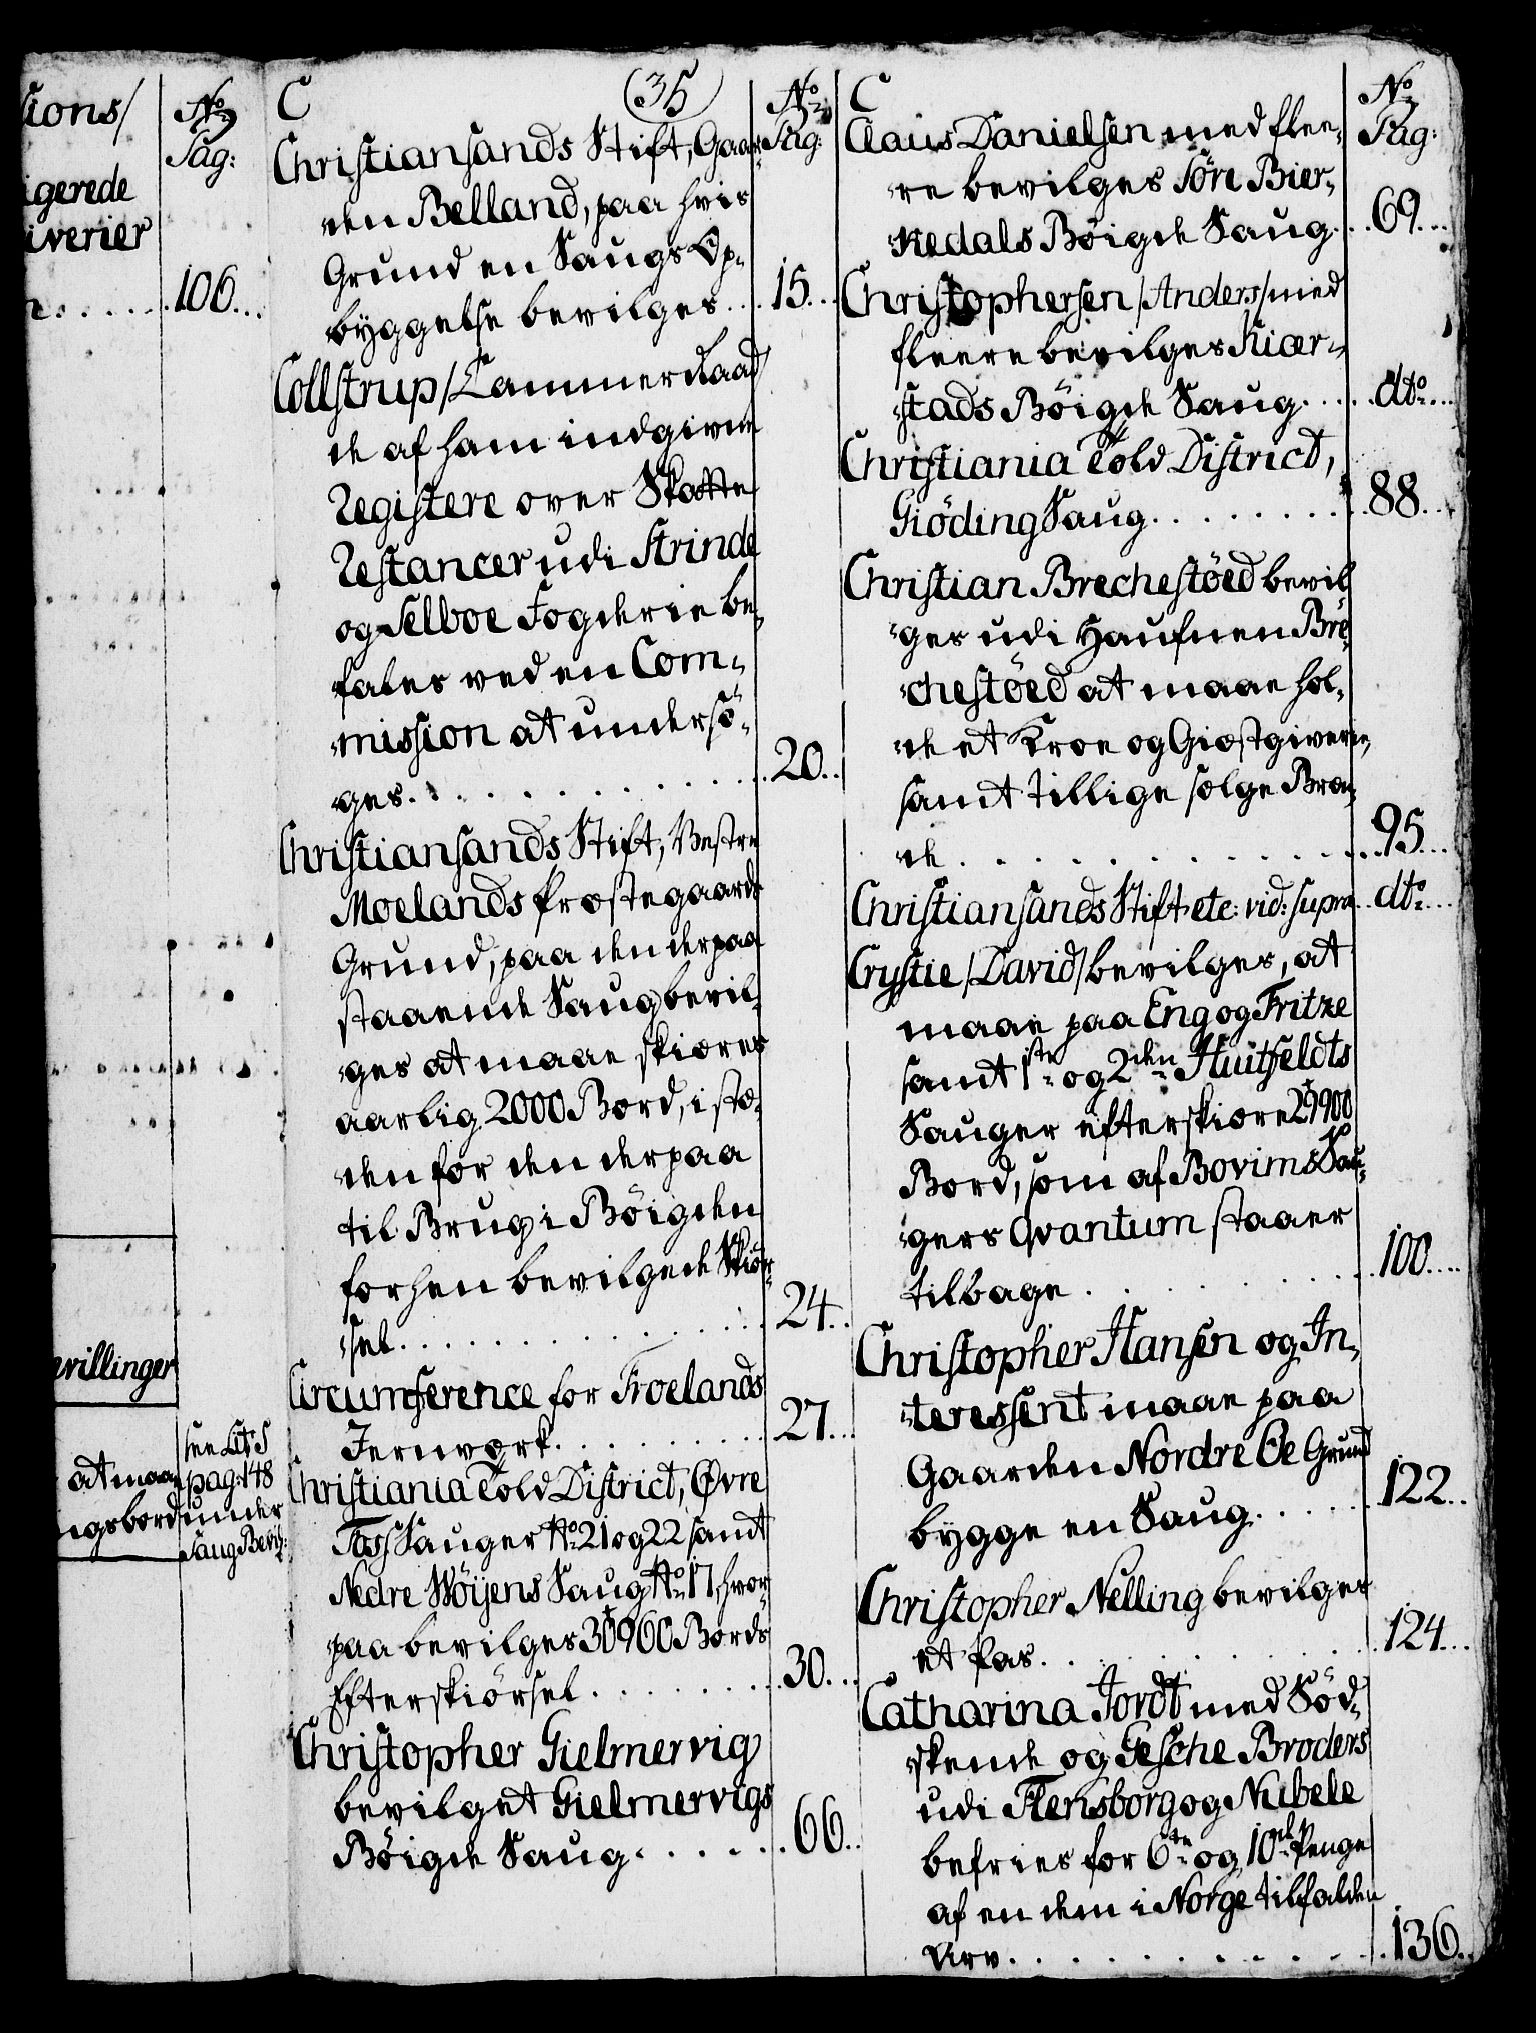 tions/
No
Pag:
igerede
iverier
106...
evillinger
at maae
ngsbord
see Litr S
pag: 148
under
Saug Bevil:
C
(35)
No
Pag:
Christiansands Stift, Gaar-
den Belland, paa hvis
Grund en Saugs Op-
byggelse bevilges... 15...
Collstrup /Cammer Raad/
de af ham indgivne
Registere over Skatte
Restancer udi Strinde
og Selboe Fogderie be-
fales ved en Com-
mission at undersö-
ges. . . . . . . . . . 20..
Christiansands Stift, Vestre
Moelands Præstegaards
Grund, paa den derpaa
staaende Saug bevil-
ges at maae skiæres
aarlig 2000 Bord, i stæ-
den for den derpaa
til Brug i Böigden
forhen bevilgede Skiör-
sel. . . . . . . . . . 24..
Circumference for Froelands
Jernværk. . . . . . . . 27...
Christiania Told District, Øvre
Foss Sauger No 21 og 22 samt
Nedre Wöijens Saug No 17, hvor-
paa bevilges 30960 Bords
Efterskiörsel. . . . . . . 30...
Christopher Gielmervig
bevilget Gielmervigs
Böigde Saug. . . . . . 66..
C
No
Pag:
Claus Danielsen med flee-
re bevilges Söre Bier-
kedals Böigde Saug... 69...
Christophersen /Anders/ med
fleere bevilges Kiær-
stads Böigde Saug. . . . . dto...
Christiania Told District,
Giöding Saug. . . . . . . . . 88..
Christian Brechestöed bevil-
ges udi Haufnen Bre-
chestöed at maae hol-
de et Kroe og Giæstgiverie,
samt tillige sælge Bræn-
de. . . . . . . . . . . . 95...
Christiansands Stift etc: vid: supra. dto...
Crystie /David/ bevilges, at
maae paa Eng og Fritze
samt 1ste og 2den Huitfeldts
Sauger efterskiære 29900
Bord, som af Bovims Sau-
gers Qvantum staaer
tilbage. . . . . . . . 100....
Christopher Hansen og In-
teressent maae paa
Gaarden Nordre Oe Grund
bygge en Saug. . . . . . 122..
Christopher Nelling bevilges
et Pas. . . . . . . . . . 124...
Catharina Jordt med Söd-
skende og Gesche Broders
udi Flensborg og Nubele
befries for 6te og 10de Penge
af en dem i Norge tilfalden
Arv. . . . . . . . . . . 136..